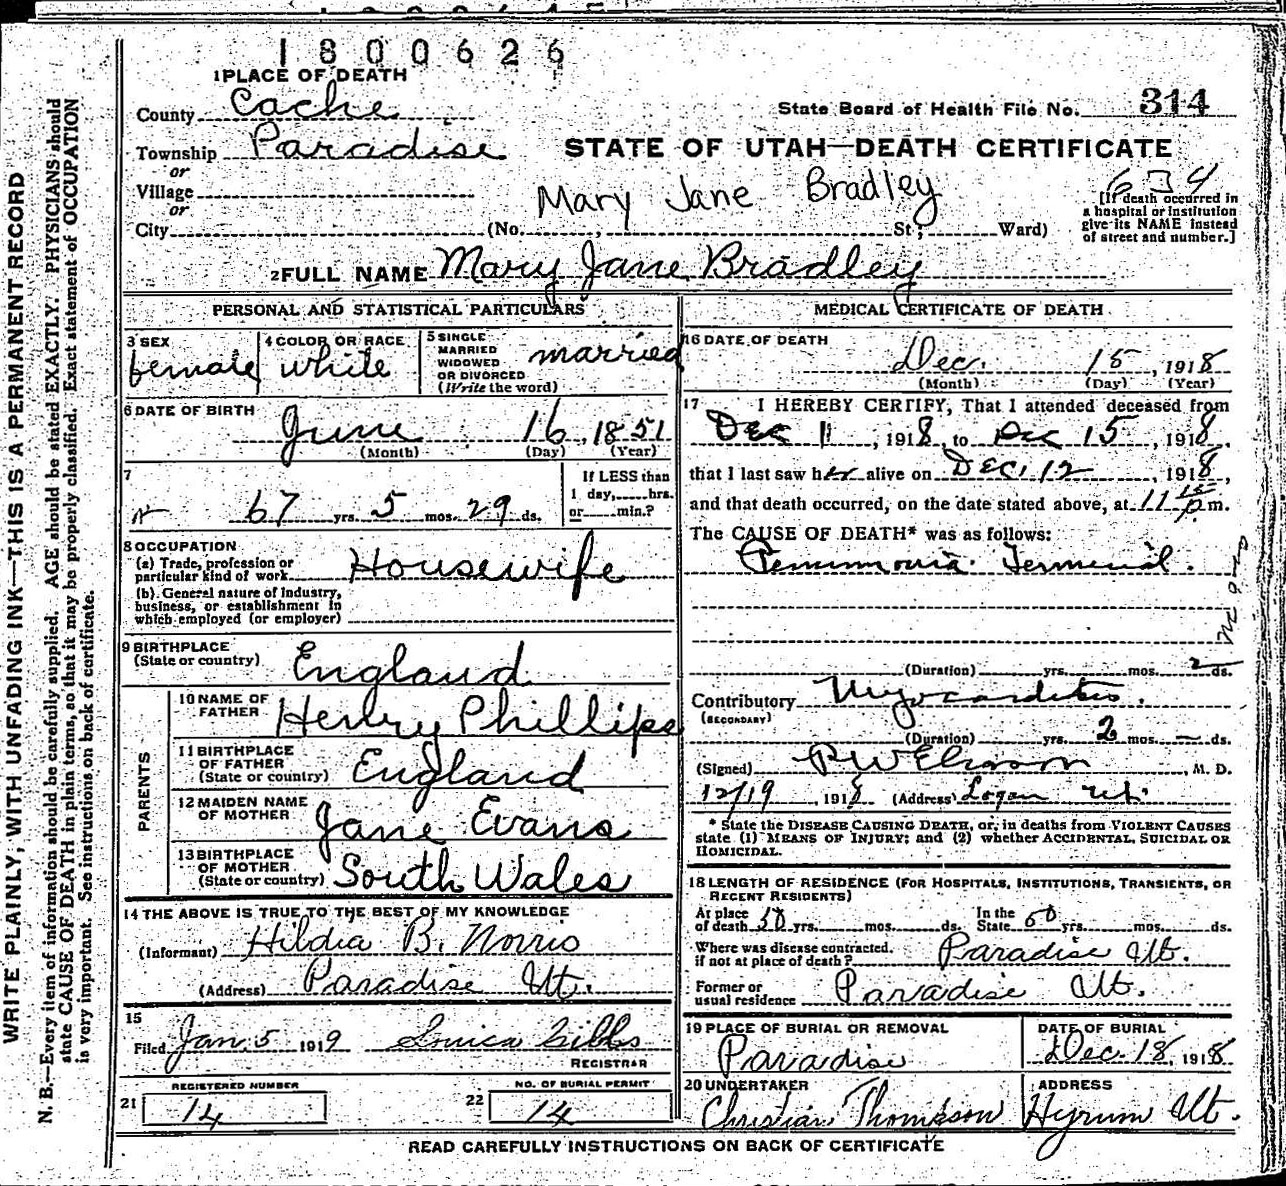 1800626
1 PLACE OF DEATH
County Cache
State Board of Health File No. 314
Township Paradise
STATE OF UTAH—DEATH CERTIFICATE
or
Village
Mary Jane Bradley
or
City (No. , St; Ward)
[If death occurred in
a hospital or institution
give its NAME instead
of street and number.]
2 FULL NAME Mary Jane Bradley
PERSONAL AND STATISTICAL PARTICULARS
3 SEX
female
4 COLOR OR RACE
white
5 SINGLE
MARRIED
WIDOWED
OR DIVORCED
(Write the word)
married
6 DATE OF BIRTH
June 16, 1851
(Month) (Day) (Year)
7
67 yrs. 5 mos. 29 ds.
If LESS than
1 day, hrs.
or min.?
8 OCCUPATION
(a) Trade, profession or
particular kind of work Housewife
(b) General nature of industry,
business, or establishment in
which employed (or employer)
9 BIRTHPLACE
(State or country) England
PARENTS
10 NAME OF
FATHER Henry Phillips
11 BIRTHPLACE
OF FATHER
(State or country) England
12 MAIDEN NAME
OF MOTHER Jane Evans
13 BIRTHPLACE
OF MOTHER
(State or country) South Wales
14 THE ABOVE IS TRUE TO THE BEST OF MY KNOWLEDGE
(Informant) Hilda B. Norris
(Address) Paradise Ut.
15
Filed Jan. 5 1919 Gibbs
REGISTRAR
REGISTERED NUMBER
21 14
NO. OF BURIAL PERMIT
22 14
MEDICAL CERTIFICATE OF DEATH
16 DATE OF DEATH
Dec. 15, 1918
(Month) (Day) (Year)
17 I HEREBY CERTIFY, That I attended deceased from
Dec 11, 1918, to Dec 15, 1918,
that I last saw her alive on Dec. 12, 1918,
and that death occurred, on the date stated above, at 11 15 p m.
The CAUSE OF DEATH* was as follows:
Penumonia Termenial.
(Duration) yrs. mos. 2 ds.
Contributory Myocarditis.
(SECONDARY)
(Duration) yrs. 2 mos. — ds.
(Signed) , M. D.
12/19, 1918 (Address) Logan Ut.
* State the DISEASE CAUSING DEATH, or, in deaths from VIOLENT CAUSES
state (1) MEANS OF INJURY; and (2) whether ACCIDENTAL, SUICIDAL OR
HOMICIDAL.
18 LENGTH OF RESIDENCE (FOR HOSPITALS, INSTITUTIONS, TRANSIENTS, OR
RECENT RESIDENTS)
At place
of death 50 yrs. mos. ds.
In the
State 50 yrs. mos. ds.
Where was disease contracted,
if not at place of death? Paradise Ut.
Former or
usual residence Paradise Ut.
19 PLACE OF BURIAL OR REMOVAL
Paradise
DATE OF BURIAL
Dec. 18, 1918
20 UNDERTAKER
Christian Thompson
ADDRESS
Hyrum Ut.
READ CAREFULLY INSTRUCTIONS ON BACK OF CERTIFICATE
WRITE PLAINLY, WITH UNFADING INK—THIS IS A PERMANENT RECORD
N. B.—Every item of information should be carefully supplied. AGE should be stated EXACTLY. PHYSICIANS should
state CAUSE OF DEATH in plain terms, so that it may be properly classified. Exact statement of OCCUPATION
is very important. See instructions on back of certificate.